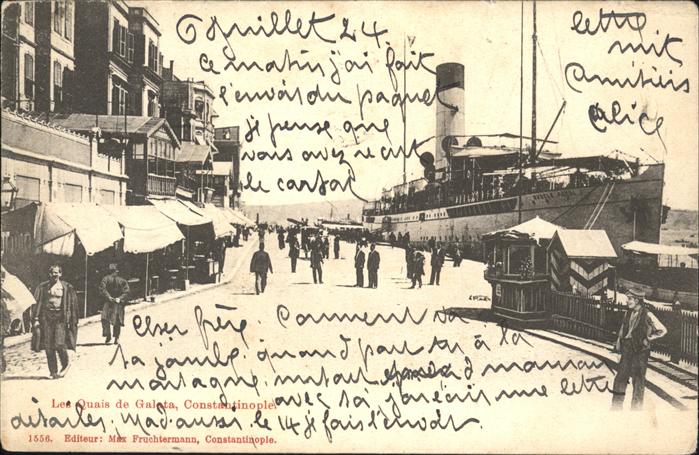 6 Juillet 24.
Ce matin j'ai fait
l'envoi du paquet
je pense que
vous avez recut
le carton
lettre
mit
Amitiés
Alice
Cher frère Comment va
ta jambe quand part tu à la
montagne, maman
avec toi j'ai écris une lettre
détailes, Mad. aussi. le 14 je fais l'envoit.
Les Quais de Galata, Constantinople.
1556. Editeur: Max Fruchtermann, Constantinople.